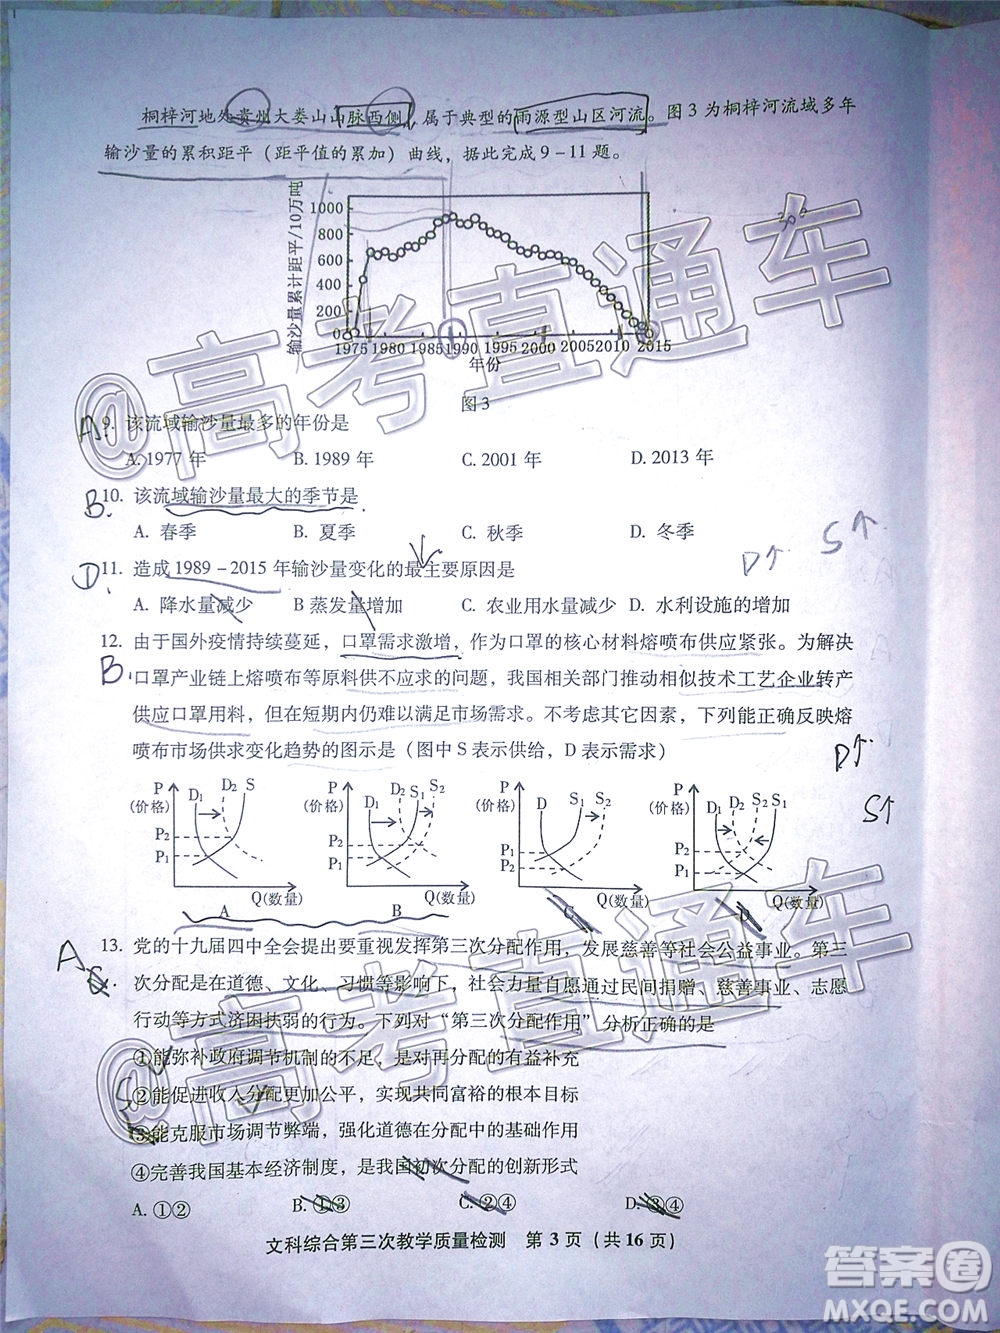 桐梓河地处贵州大娄山山脉西侧，属于典型的雨源型山区河流。图3为桐梓河流域多年
输沙量的累积距平（距平值的累加）曲线，据此完成9－11题。
输沙量累计距平/10万吨
1000
800
600
400
200
0
1975 1980 1985 1990 1995 2000 2005 2010 2015
年份
图3
A 9. 该流域输沙量最多的年份是
A. 1977年 B. 1989年 C. 2001年 D. 2013年
B. 10. 该流域输沙量最大的季节是
A. 春季 B. 夏季 C. 秋季 D. 冬季
S↑
D↑
D 11. 造成1989－2015年输沙量变化的最主要原因是
A. 降水量减少 B 蒸发量增加 C. 农业用水量减少 D. 水利设施的增加
12. 由于国外疫情持续蔓延，口罩需求激增，作为口罩的核心材料熔喷布供应紧张。为解决
B. 口罩产业链上熔喷布等原料供不应求的问题，我国相关部门推动相似技术工艺企业转产
供应口罩用料，但在短期内仍难以满足市场需求。不考虑其它因素，下列能正确反映熔
喷布市场供求变化趋势的图示是（图中S表示供给，D表示需求）
D↑
S↑
P (价格) D₁ D₂ S P₂ P₁ Q(数量) A
P (价格) D₁ D₂ S₁ S₂ P₂ P₁ Q(数量) B
P (价格) D S₁ S₂ P₁ P₂ Q(数量) C
P (价格) D₁ D₂ S₂ S₁ P₂ P₁ Q(数量) D
A 13. 党的十九届四中全会提出要重视发挥第三次分配作用，发展慈善等社会公益事业。第三
次分配是在道德、文化、习惯等影响下，社会力量自愿通过民间捐赠、慈善事业、志愿
行动等方式济困扶弱的行为。下列对“第三次分配作用”分析正确的是
①能弥补政府调节机制的不足，是对再分配的有益补充
②能促进收入分配更加公平，实现共同富裕的根本目标
③能克服市场调节弊端，强化道德在分配中的基础作用
④完善我国基本经济制度，是我国初次分配的创新形式
A. ①② B. ①③ C. ②④ D. ③④
文科综合第三次教学质量检测 第3页（共16页）
@高考直通车
@高考直通车
答案圈
MXQE.COM